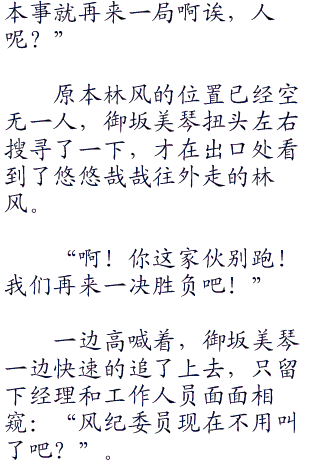 本事就再来一局啊诶，人
呢？”
原本林风的位置已经空
无一人，御坂美琴扭头左右
搜寻了一下，才在出口处看
到了悠悠哉哉往外走的林
风。
“啊！你这家伙别跑！
我们再来一决胜负吧！”
一边高喊着，御坂美琴
一边快速的追了上去，只留
下经理和工作人员面面相
窥：“风纪委员现在不用叫
了吧？”。